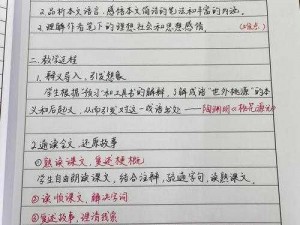 2.品析本文语言,感悟本文简洁的笔法和丰富的内涵。
3.理解作者笔下的理想社会和思想感情。(难点)
二.教学过程
1.释义导入,引发想象
学生根据预习和工具书的解释,了解成语"世外桃源"的本
义和后起义,从而引发对这一成语出处——陶渊明《桃花源记》
2.通读全文,还原故事
①熟读课文,复述梗概
学生自由朗读课文,结合注释,疏通字句,读熟课文。
②读顺课文,解决字词
③复述故事,理清线索